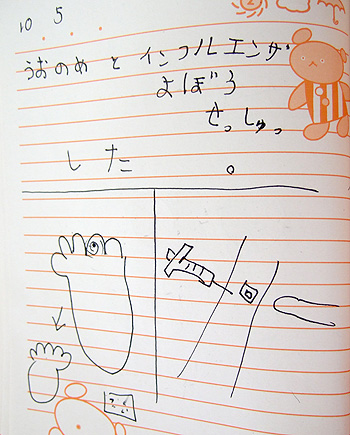 10 5
うおのめ と インフルエンザ
よぼう
さっしゅっ
した 。